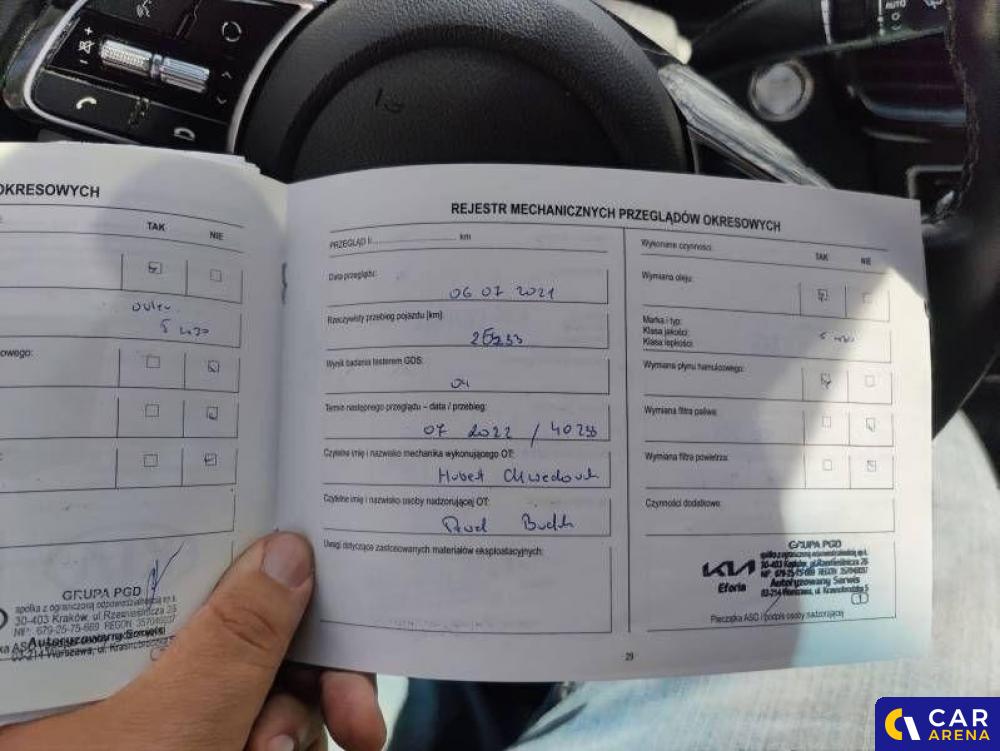 AUTO
OKRESOWYCH
TAK NIE
5 W30
owego:
GRUPA PGD
spółka z ograniczoną odpowiedzialnością sp.k.
30-403 Kraków, ul.Rzemieślnicza 26
NIP: 679-25-75-669 REGON: 357049037
Autoryzowany Serwis
02-214 Warszawa, ul. Krasnobrodzka 5
REJESTR MECHANICZNYCH PRZEGLĄDÓW OKRESOWYCH
PRZEGLĄD II km
Data przeglądu:
06 07 2021
Rzeczywisty przebieg pojazdu [km]:
Wynik badania testerem GDS:
Termin następnego przeglądu – data / przebieg:
07 2022 /
Czytelne imię i nazwisko mechanika wykonującego OT:
Hubert
Czytelne imię i nazwisko osoby nadzorującej OT:
Uwagi dotyczące zastosowanych materiałów eksploatacyjnych:
Wykonane czynności:
TAK NIE
Wymiana oleju:
Marka i typ:
Klasa jakości:
Klasa lepkości:
5 W30
Wymiana płynu hamulcowego:
Wymiana filtra paliwa:
Wymiana filtra powietrza:
Czynności dodatkowe:
GRUPA PGD
spółka z ograniczoną odpowiedzialnością sp.k.
30-403 Kraków, ul.Rzemieślnicza 26
NIP: 679-25-75-669 REGON: 357049037
Autoryzowany Serwis
02-214 Warszawa, ul. Krasnobrodzka 5
KIA
Eforia
Pieczątka ASO i podpis osoby nadzorującej
29
CAR
ARENA